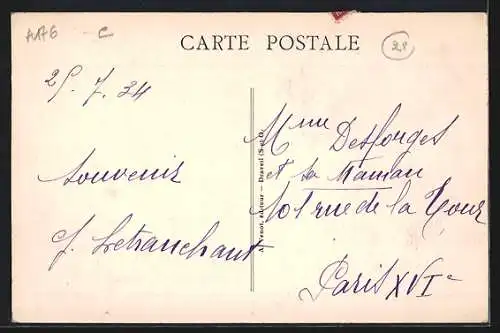 A176 C
CARTE POSTALE
28
25.7.34
Souvenir
J. Letranchant
A. Thévenot, éditeur — Draveil (S.-et-O.)
Mme Desforges
et sa Maman
101 rue de la Tour
Paris XVIe